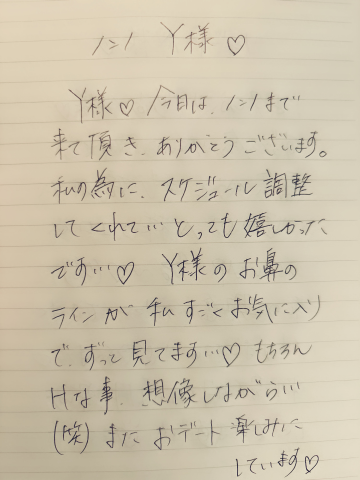 ノンノ Y様♡
Y様♡今日は、ノンノまで
来て頂き、ありがとうございます。
私の為に、スケジュール調整
してくれて…とっても嬉しかった
です…♡ Y様のお鼻の
ラインが私すごくお気に入り
で、ずっと見てます…♡もちろん
Hな事、想像しながら…
(笑)またおデート楽しみに
しています♡